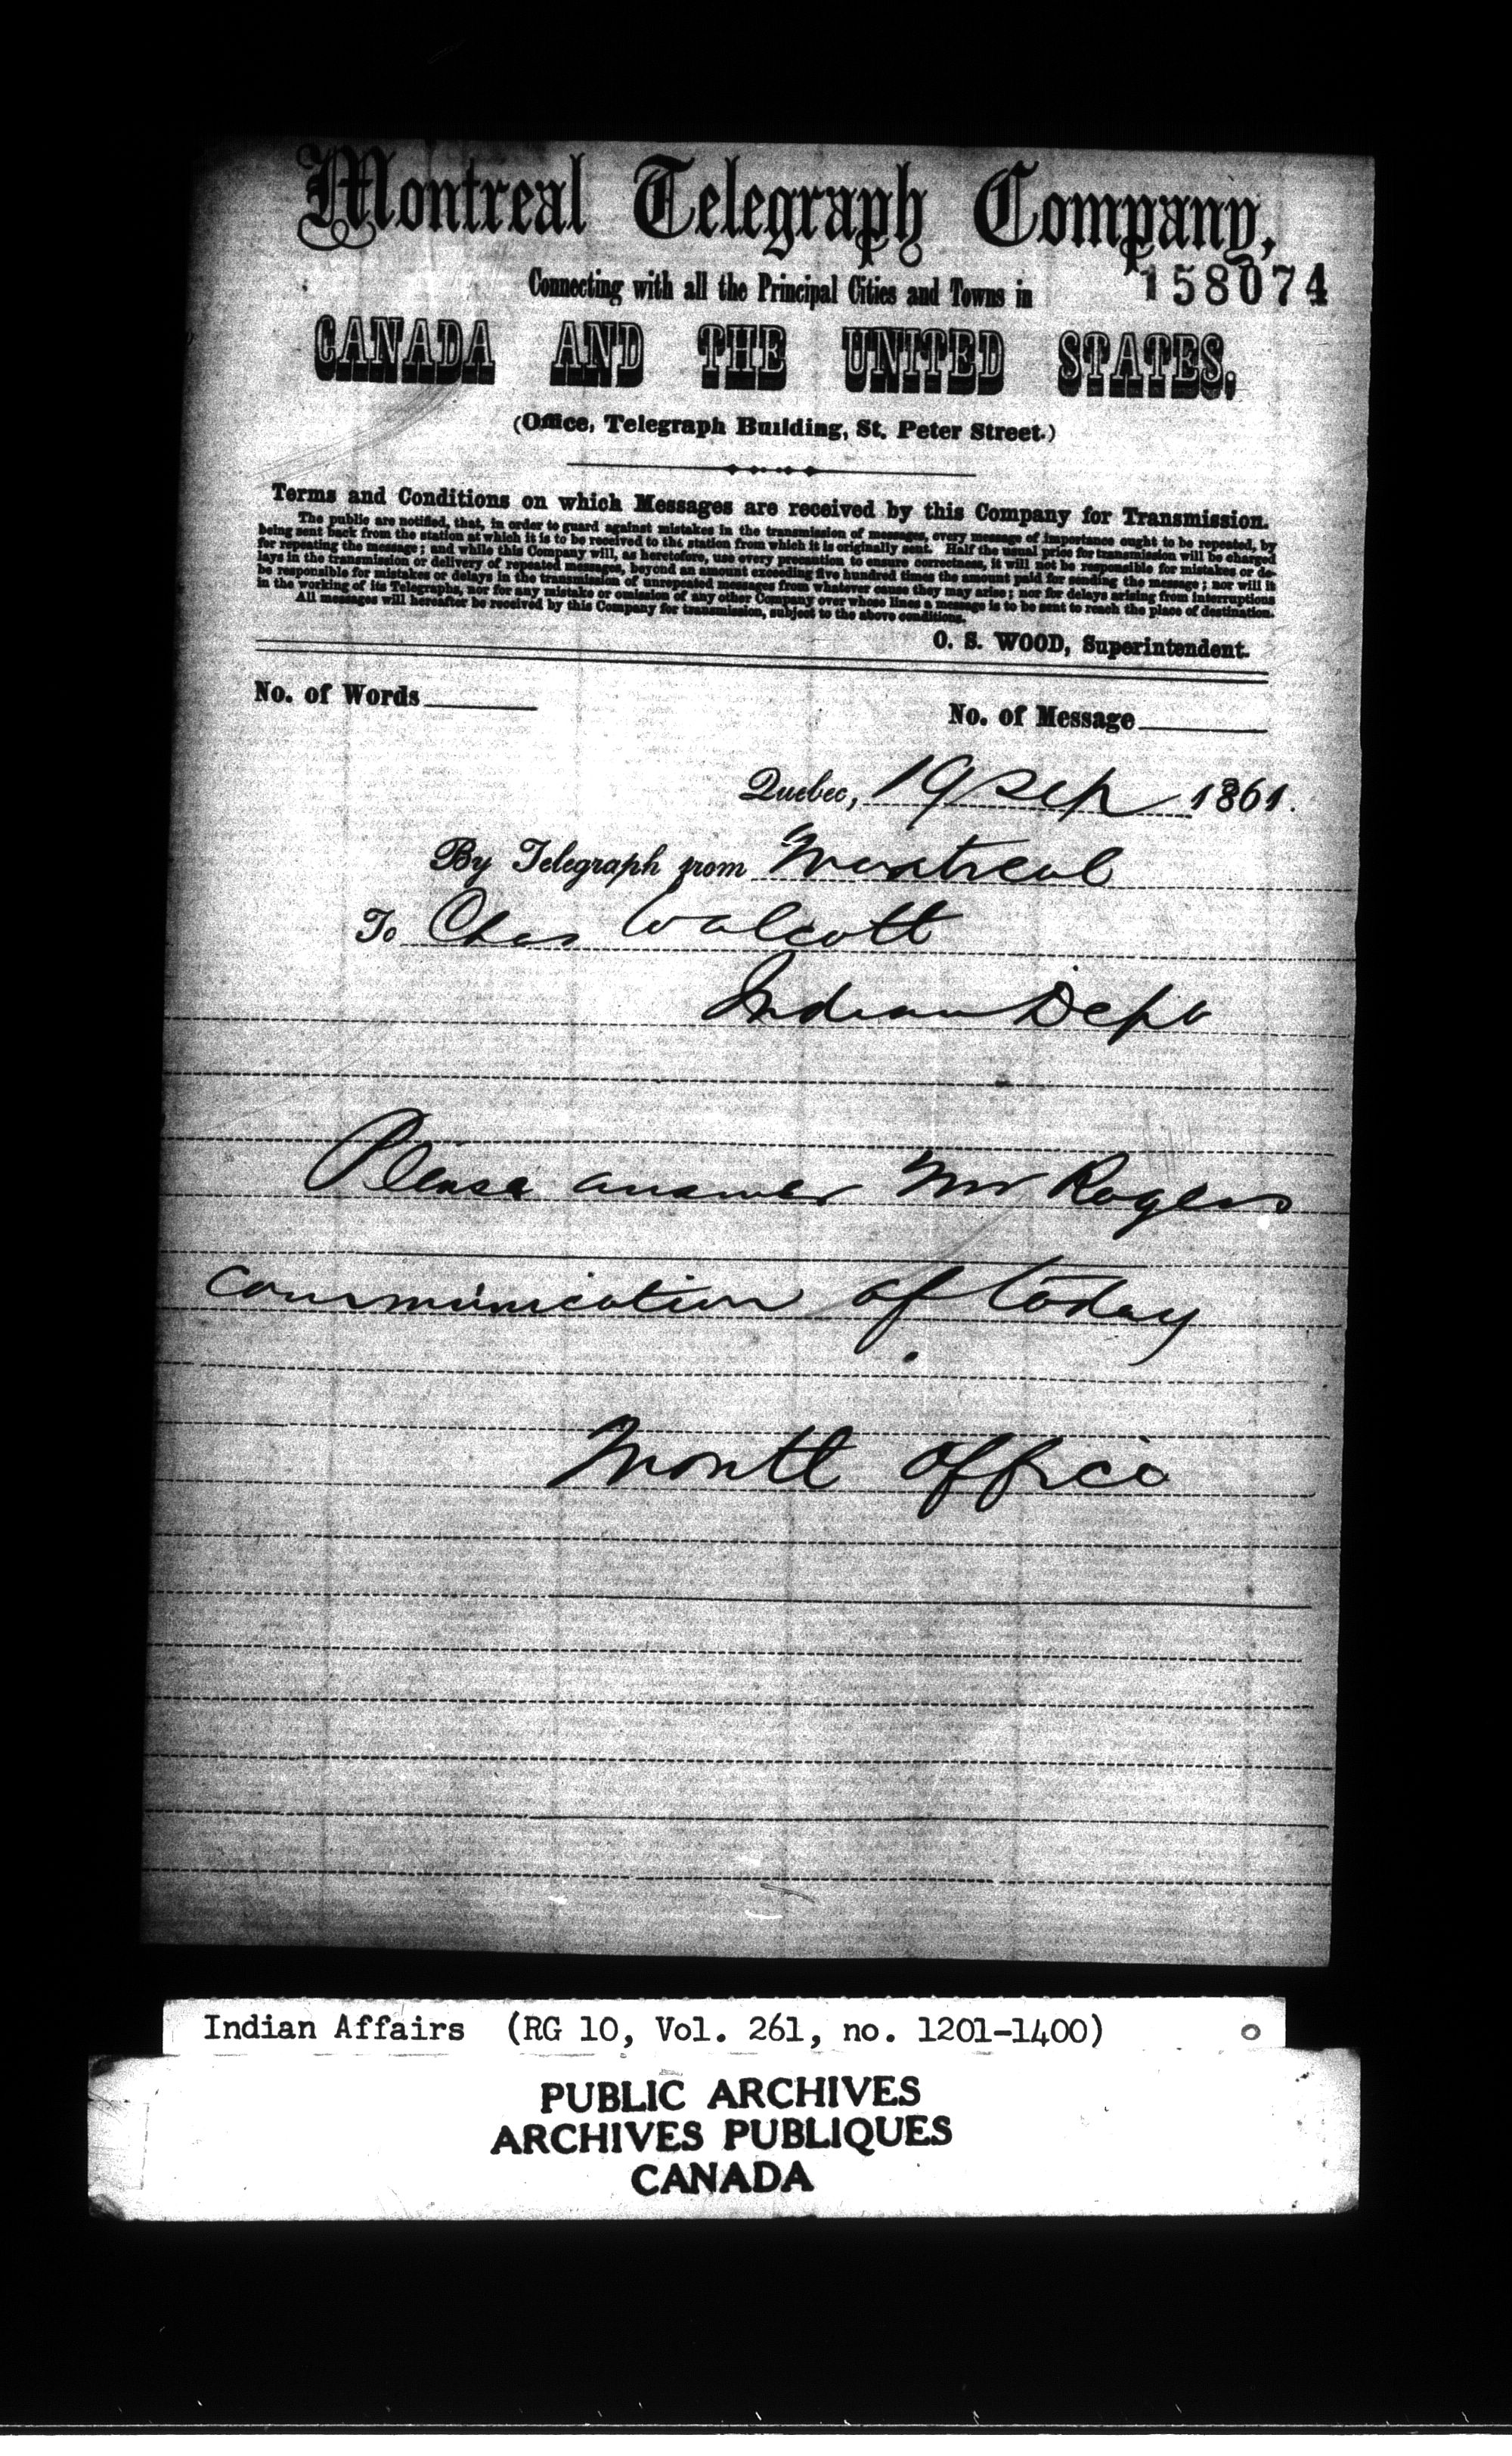 Montreal Telegraph Company,
Connecting with all the Principal Cities and Towns in
158074
CANADA AND THE UNITED STATES,
(Office, Telegraph Building, St. Peter Street.)
Terms and Conditions on which Messages are received by this Company for Transmission.
The public are notified, that, in order to guard against mistakes in the transmission of messages, every message of importance ought to be repeated, by
being sent back from the station at which it is to be received to the station from which it is originally sent. Half the usual price for transmission will be charged
for repeating the message; and while this Company will, as heretofore, use every precaution to ensure correctness, it will not be responsible for mistakes or de-
lays in the transmission or delivery of repeated messages, beyond an amount exceeding five hundred times the amount paid for sending the message; nor will it
be responsible for mistakes or delays in the transmission of unrepeated messages from whatever cause they may arise; nor for delays arising from interruptions
in the working of its Telegraphs, nor for any mistake or omission of any other Company over whose lines a message is to be sent to reach the place of destination.
All messages will hereafter be received by this Company for transmission, subject to the above conditions.
O. S. WOOD, Superintendent.
No. of Words
No. of Message
Quebec, 19 Sep 1861.
By Telegraph from Montreal
To Chas Walcott
Indian Dept
Please answer Mr Rogers
communication of today
Montl office
Indian Affairs (RG 10, Vol. 261, no. 1201-1400)
PUBLIC ARCHIVES
ARCHIVES PUBLIQUES
CANADA